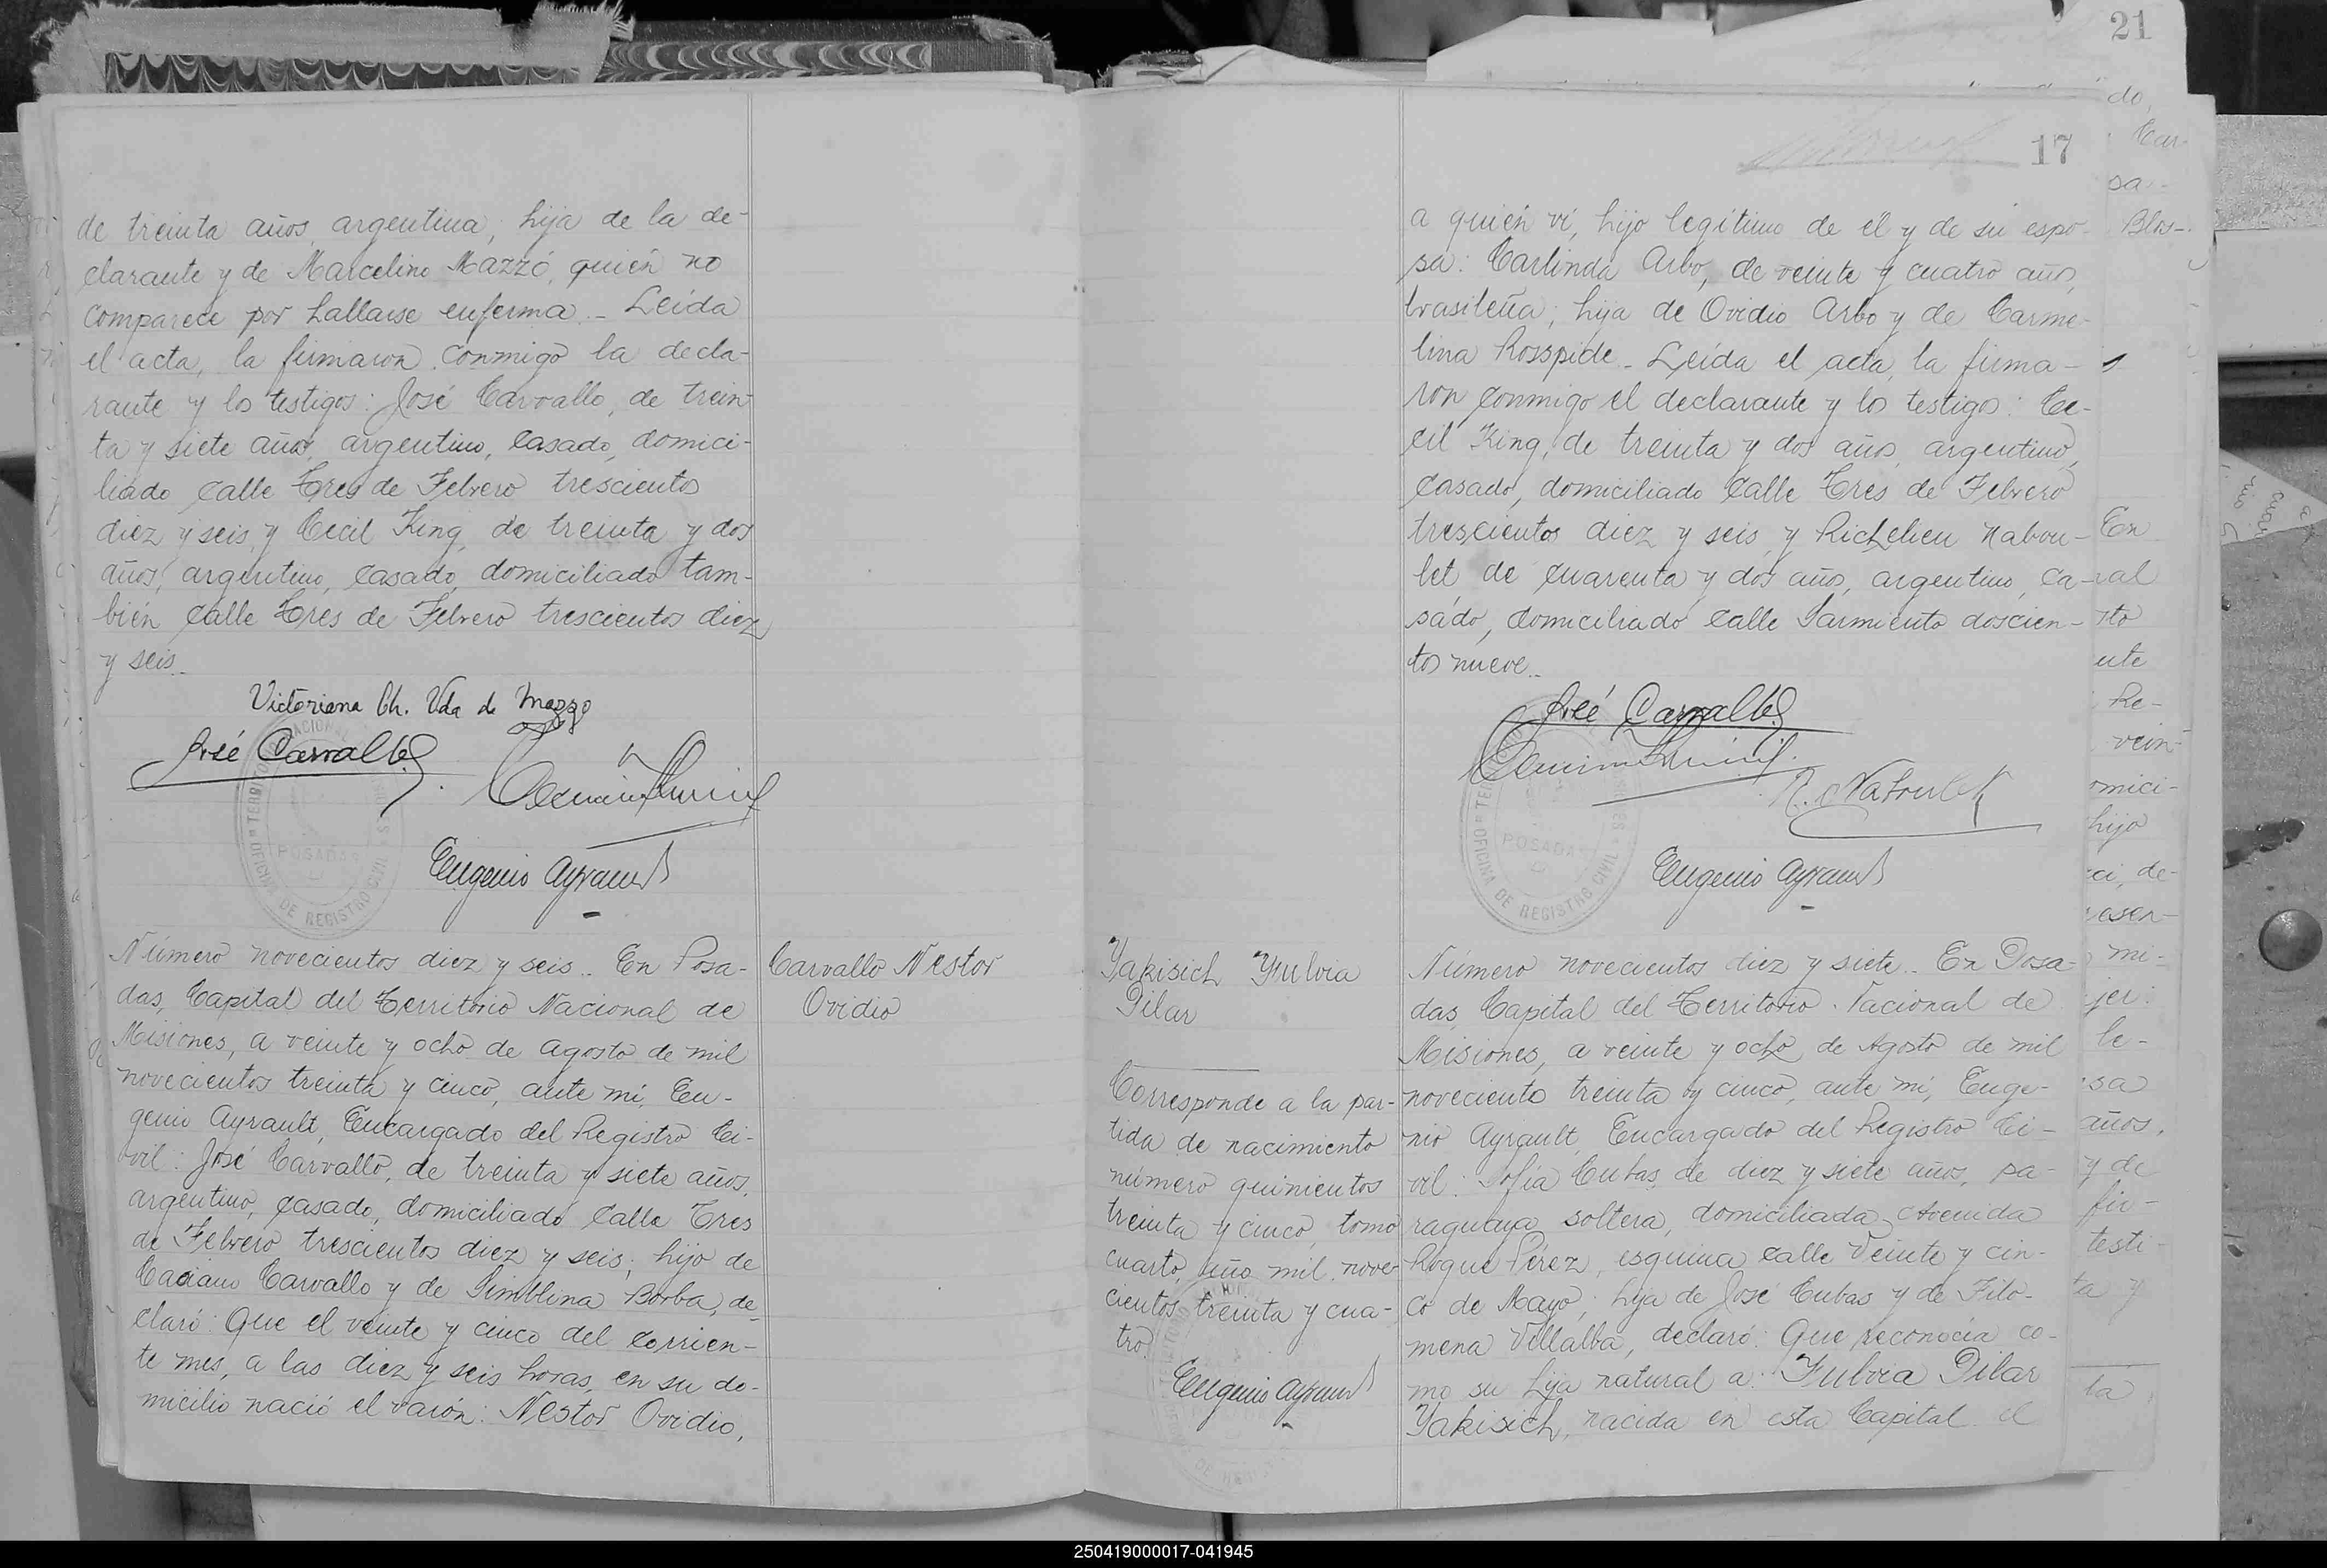 21
17
de treinta años, argentina, hija de la de-
clarante y de Marcelino Mazzó, quién no
comparece por hallarse enferma.- Leída
el acta, la firmaron conmigo la decla-
rante y los testigos: José Carvallo, de trein-
ta y siete años, argentino, casado, domici-
liado calle Tres de Febrero trescientos
diez y seis, y Cecil King, de treinta y dos
años, argentino, casado, domiciliado tam-
bién calle Tres de Febrero trescientos diez
y seis.-
Victoriana Ch. Vda de Mazzo
José Carvallo
Eugenio Ayrault
TERRITORIO NACIONAL
POSADAS
OFICINA DE REGISTRO CIVIL
Carvallo Nestor
Ovidio
Número novecientos diez y seis.. En Posa-
das, Capital del Territorio Nacional de
Misiones, a veinte y ocho de agosto de mil
novecientos treinta y cinco, ante mí, Eu-
genio Ayrault, Encargado del Registro Ci-
vil: José Carvallo, de treinta y siete años,
argentino, casado, domiciliado calle Tres
de Febrero trescientos diez y seis; hijo de
Carvallo y de Borba, de-
claró: Que el veinte y cinco del corrien-
te mes, a las diez y seis horas, en su do-
micilio nació el varón: Nestor Ovidio,
a quién ví, hijo legítimo de él y de su espo-
sa: Carlinda Arbo, de veinte y cuatro años,
brasileña; hija de Ovidio Arbo y de Carme-
lina Rosspide.- Leída el acta, la firma-
ron conmigo el declarante y los testigos: Ce-
cil King, de treinta y dos años, argentino,
casado, domiciliado calle Tres de Febrero
trescientos diez y seis, y Richelieu Nabou-
let, de cuarenta y dos años, argentino, ca-
sado, domiciliado calle Sarmiento doscien-
tos nueve..
José Carvallo
R. Naboulet
Eugenio Ayrault
POSADAS
OFICINA DE REGISTRO CIVIL
Yakisich Fulvia
Pilar
Corresponde a la par-
tida de nacimiento
número quinientos
treinta y cinco, tomo
cuarto, año mil nove-
cientos treinta y cua-
tro.
Eugenio Ayrault
Número novecientos diez y siete.. En Posa-
das, Capital del Territorio Nacional de
Misiones, a veinte y ocho de Agosto de mil
noveciento treinta y cinco, ante mí, Euge-
nio Ayrault, Encargado del Registro Ci-
vil: Sofía Cubas, de diez y siete años, pa-
raguaya, soltera, domiciliada Avenida
Roque Pérez, esquina calle Veinte y cin-
co de Mayo; hija de José Cubas y de Filo-
mena Villalba, declaró: Que reconocía co-
mo su hija natural a: Fulvia Pilar
Yakisich, nacida en esta Capital el
250419000017-041945